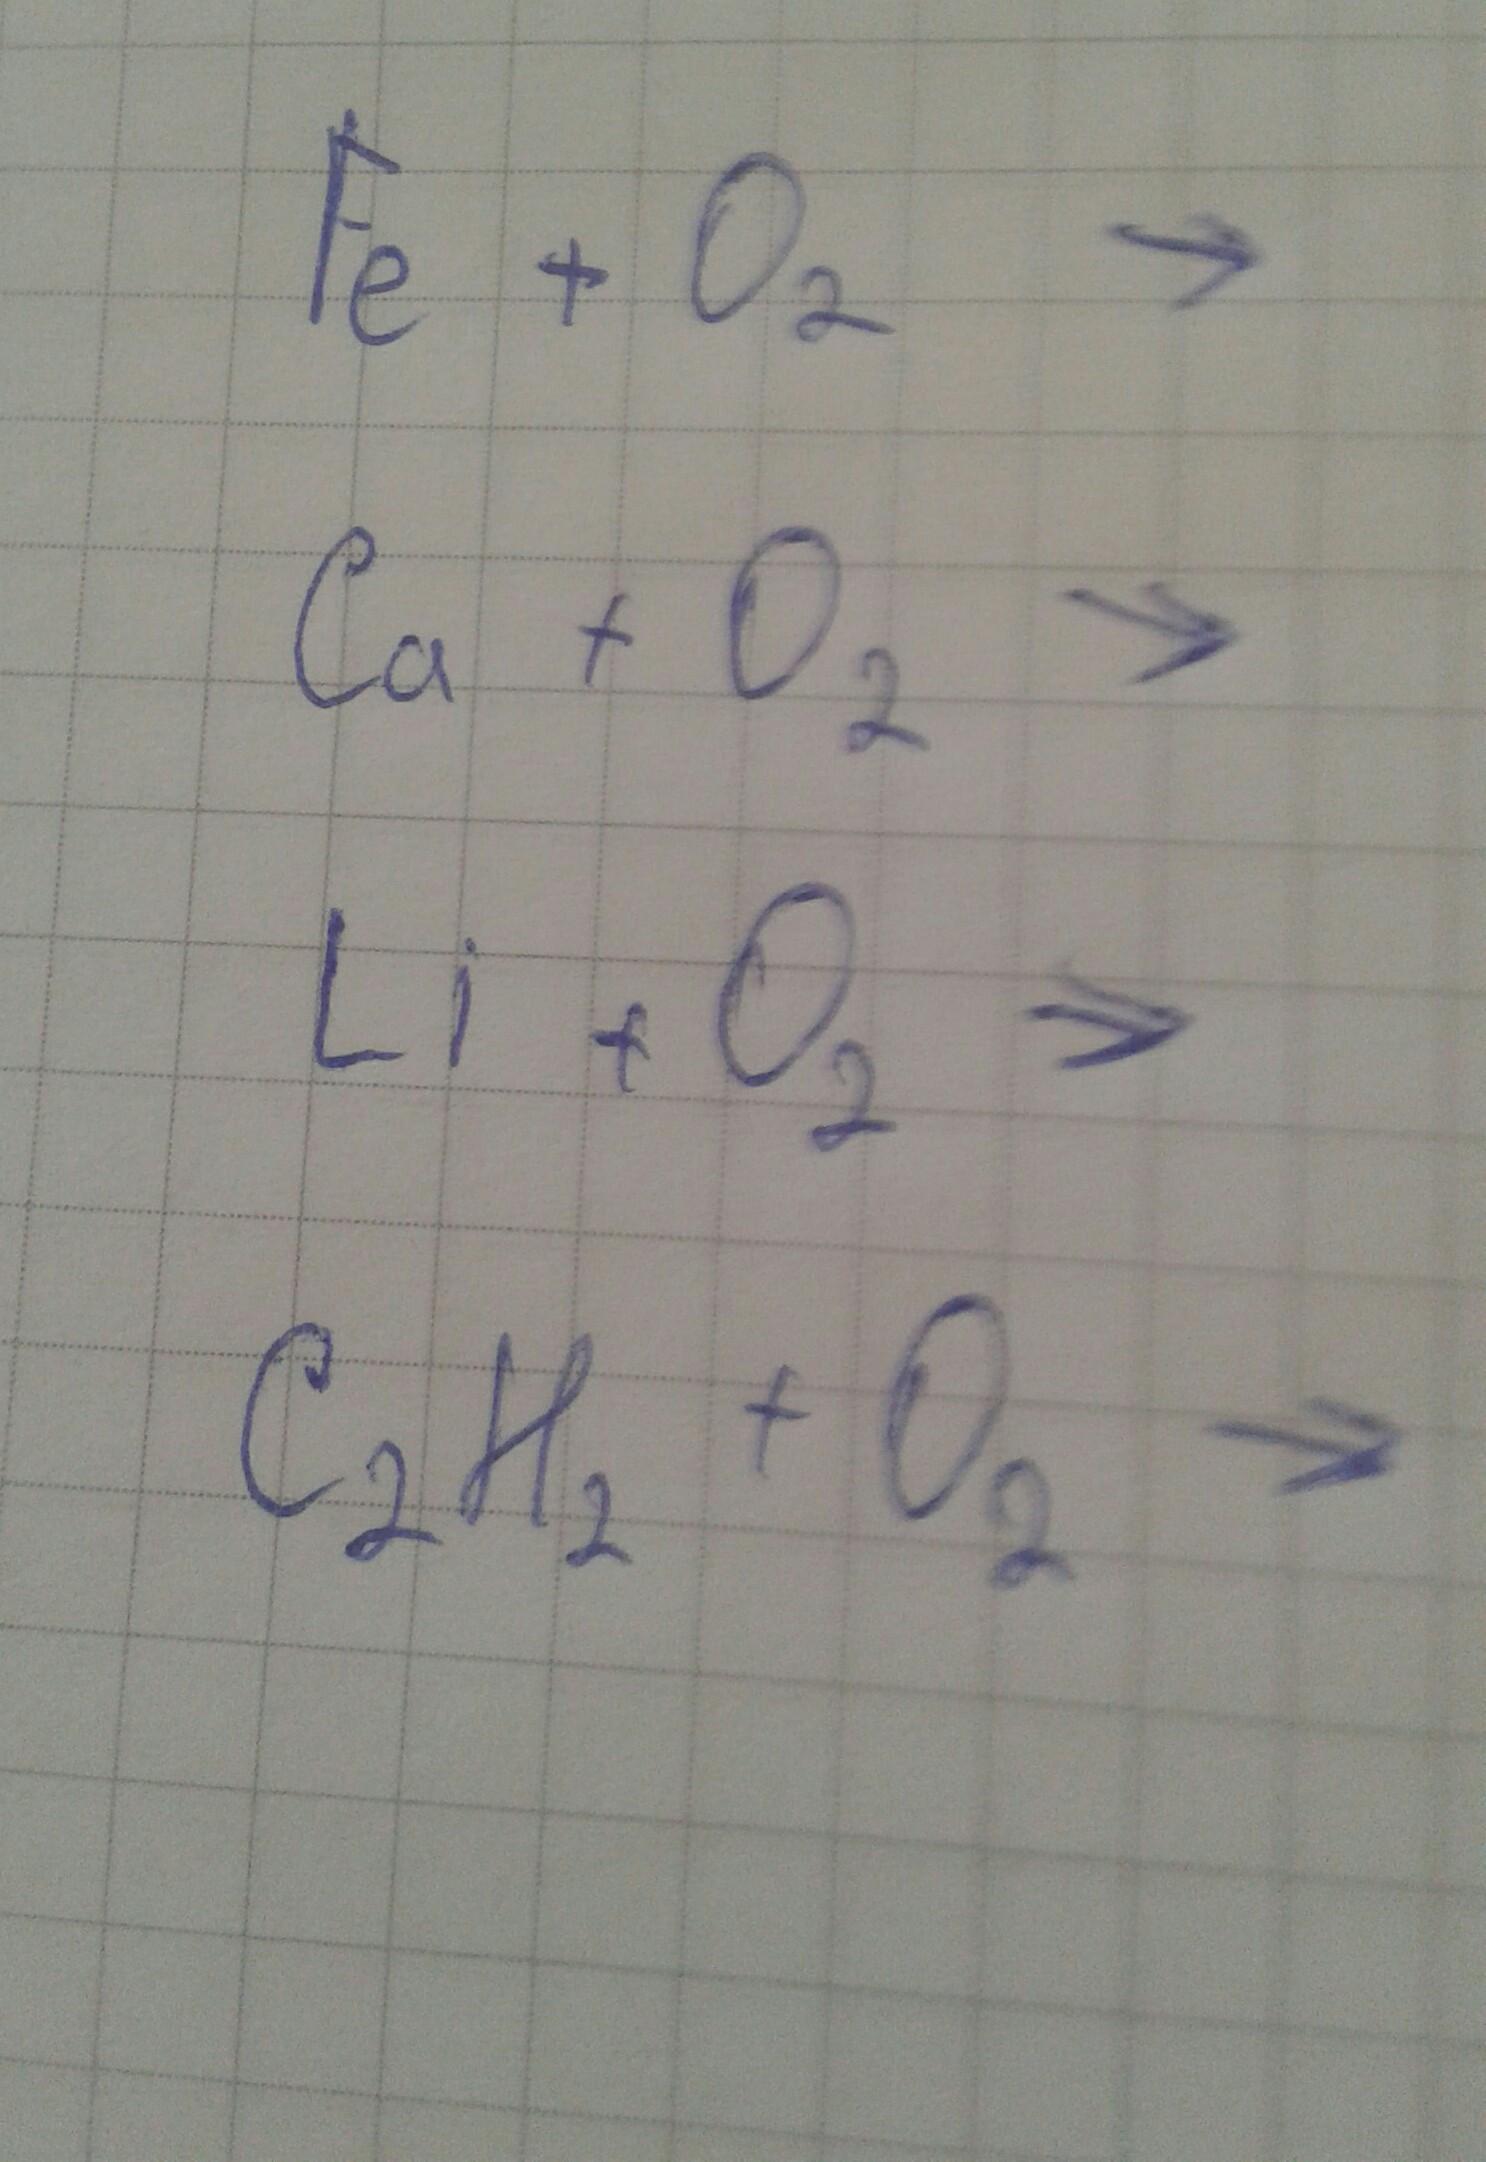 Fe + O₂ →
Ca + O₂ →
Li + O₂ →
C₂H₂ + O₂ →